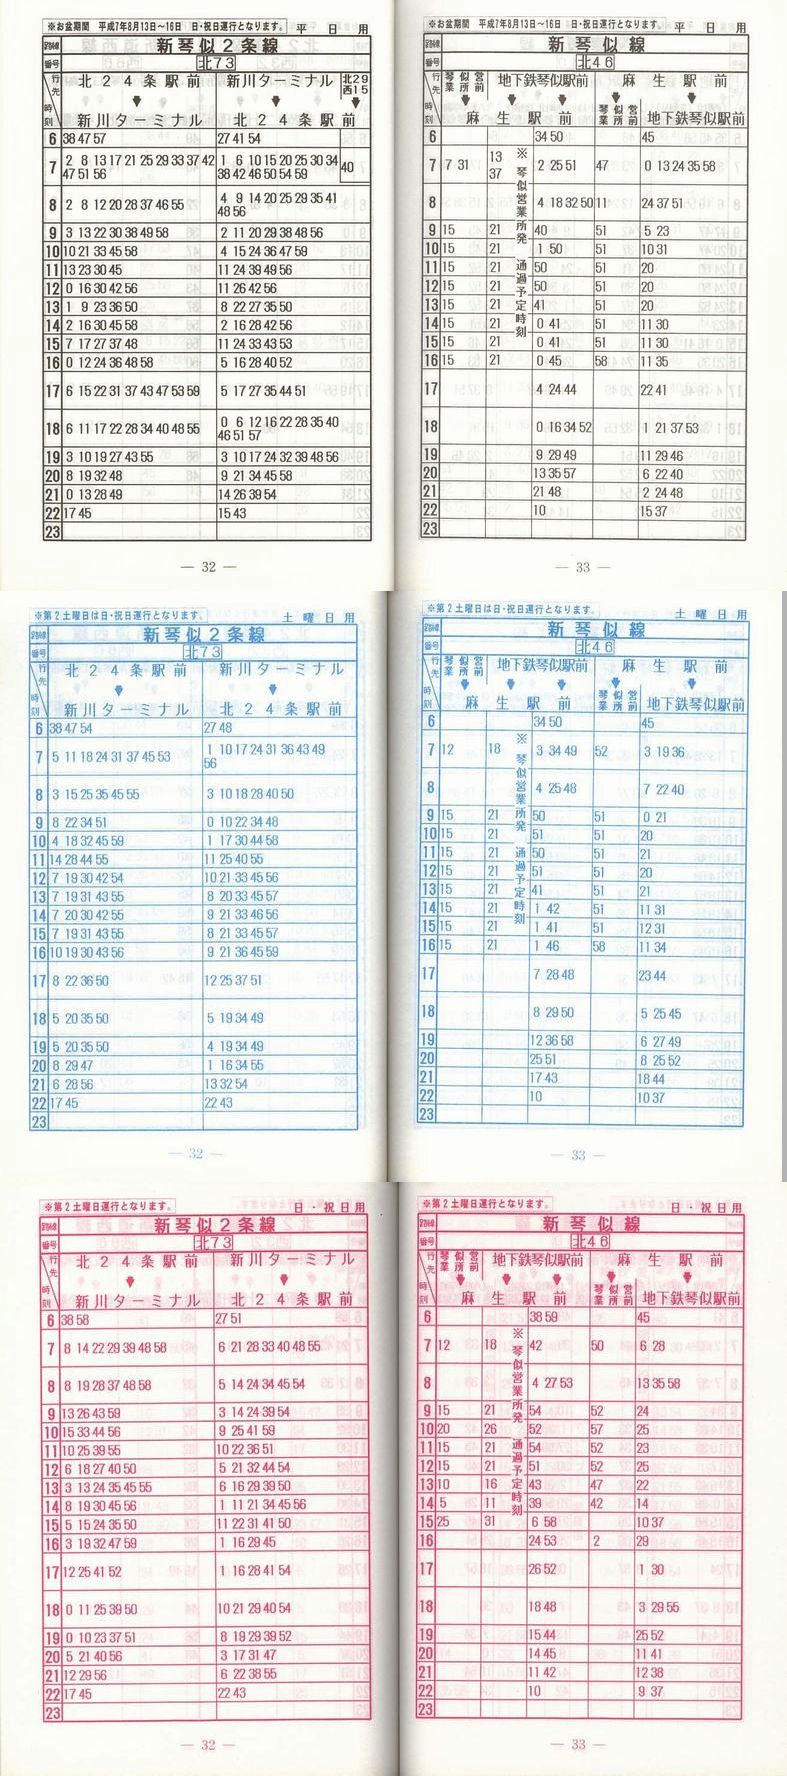 ※お盆期間　平成7年8月13日～16日　日・祝日運行となります。 平日用
路線 新琴似2条線
番号 北73
行先 北24条駅前 新川ターミナル 北29西15
時刻 新川ターミナル 北24条駅前
6 38 47 57 27 41 54
7 2 8 13 17 21 25 29 33 37 42 1 6 10 15 20 25 30 34 40
47 51 56 38 42 46 50 54 59
8 2 8 12 20 28 37 46 55 4 9 14 20 25 29 35 41
48 56
9 3 13 22 30 38 49 58 2 11 20 29 38 48 56
10 10 21 33 45 58 4 15 24 36 47 59
11 13 23 30 45 11 24 39 49 56
12 0 16 30 42 56 11 26 42 56
13 1 9 23 36 50 8 22 27 35 50
14 2 16 30 45 58 2 16 28 42 56
15 7 17 27 37 48 11 24 33 43 53
16 0 12 24 36 48 58 5 16 28 40 52
17 6 15 22 31 37 43 47 53 59 5 17 27 35 44 51
18 6 11 17 22 28 34 40 48 55 0 6 12 16 22 28 35 40
46 51 57
19 3 10 19 27 43 55 3 10 17 24 32 39 48 56
20 8 19 32 48 9 21 34 45 58
21 0 13 28 49 14 26 39 54
22 17 45 15 43
23
― 32 ―
※お盆期間　平成7年8月13日～16日　日・祝日運行となります。 平日用
路線 新琴似線
番号 北46
行先 琴似営業所前 地下鉄琴似駅前 麻生駅前
時刻 麻生駅前 琴似営業所前 地下鉄琴似駅前
※琴似営業所発　通過予定時刻
6 34 50 45
7 7 31 13 37 2 25 51 47 0 13 24 35 58
8 4 18 32 50 11 24 37 51
9 15 21 40 51 5 23
10 15 21 1 50 51 10 31
11 15 21 50 51 20
12 15 21 50 51 20
13 15 21 41 51 20
14 15 21 0 41 51 11 30
15 15 21 0 41 51 11 30
16 15 21 0 45 58 11 35
17 4 24 44 22 41
18 0 16 34 52 1 21 37 53
19 9 29 49 11 29 46
20 13 35 57 6 22 40
21 21 48 2 24 48
22 10 15 37
23
― 33 ―
※第2土曜日は日・祝日運行となります。 土曜日用
路線 新琴似2条線
番号 北73
行先 北24条駅前 新川ターミナル
時刻 新川ターミナル 北24条駅前
6 38 47 54 27 48
7 5 11 18 24 31 37 45 53 1 10 17 24 31 36 43 49
56
8 3 15 25 35 45 55 3 10 18 28 40 50
9 8 22 34 51 0 10 22 34 48
10 4 18 32 45 59 1 17 30 44 58
11 14 28 44 55 11 25 40 55
12 7 19 30 42 54 10 21 33 45 56
13 7 19 31 43 55 8 20 33 45 57
14 7 20 30 42 55 9 21 33 46 56
15 7 19 31 43 55 8 21 33 45 57
16 10 19 30 43 56 9 21 36 45 59
17 8 22 36 50 12 25 37 51
18 5 20 35 50 5 19 34 49
19 5 20 35 50 4 19 34 49
20 8 29 47 1 16 34 55
21 6 28 56 13 32 54
22 17 45 22 43
23
― 32 ―
※第2土曜日は日・祝日運行となります。 土曜日用
路線 新琴似線
番号 北46
行先 琴似営業所前 地下鉄琴似駅前 麻生駅前
時刻 麻生駅前 琴似営業所前 地下鉄琴似駅前
※琴似営業所発　通過予定時刻
6 34 50 45
7 12 18 3 34 49 52 3 19 36
8 4 25 48 7 22 40
9 15 21 50 51 0 21
10 15 21 51 51 20
11 15 21 50 51 21
12 15 21 51 51 20
13 15 21 41 51 21
14 15 21 1 42 51 11 31
15 15 21 1 41 51 12 31
16 15 21 1 46 58 11 34
17 7 28 48 23 44
18 8 29 50 5 25 45
19 12 36 58 6 27 49
20 25 51 8 25 52
21 17 43 18 44
22 10 10 37
23
― 33 ―
※第2土曜日運行となります。 日・祝日用
路線 新琴似2条線
番号 北73
行先 北24条駅前 新川ターミナル
時刻 新川ターミナル 北24条駅前
6 38 58 27 51
7 8 14 22 29 39 48 58 6 21 28 33 40 48 55
8 8 19 28 37 48 58 5 14 24 34 45 54
9 13 26 43 59 3 14 24 39 54
10 15 33 44 56 9 25 41 59
11 10 25 39 55 10 22 36 51
12 6 18 27 40 50 5 21 32 44 54
13 3 13 24 35 45 55 6 16 29 39 50
14 8 19 30 45 56 1 11 21 34 45 56
15 5 15 24 35 50 11 22 31 41 50
16 3 19 32 47 59 1 16 29 45
17 12 25 41 52 1 16 28 41 54
18 0 11 25 39 50 10 21 29 40 54
19 0 10 23 37 51 8 19 29 39 52
20 5 21 40 56 3 17 31 47
21 12 29 56 6 22 38 55
22 17 45 22 43
23
― 32 ―
※第2土曜日運行となります。 日・祝日用
路線 新琴似線
番号 北46
行先 琴似営業所前 地下鉄琴似駅前 麻生駅前
時刻 麻生駅前 琴似営業所前 地下鉄琴似駅前
※琴似営業所発　通過予定時刻
6 38 59 45
7 12 18 42 50 6 28
8 4 27 53 13 35 58
9 15 21 54 52 24
10 20 26 52 57 25
11 15 21 54 52 23
12 15 21 51 52 25
13 10 16 43 47 22
14 5 11 39 42 14
15 25 31 6 58 10 37
16 24 53 2 29
17 26 52 1 30
18 18 48 3 29 55
19 15 44 25 52
20 14 45 11 41
21 11 42 12 38
22 10 9 37
23
― 33 ―